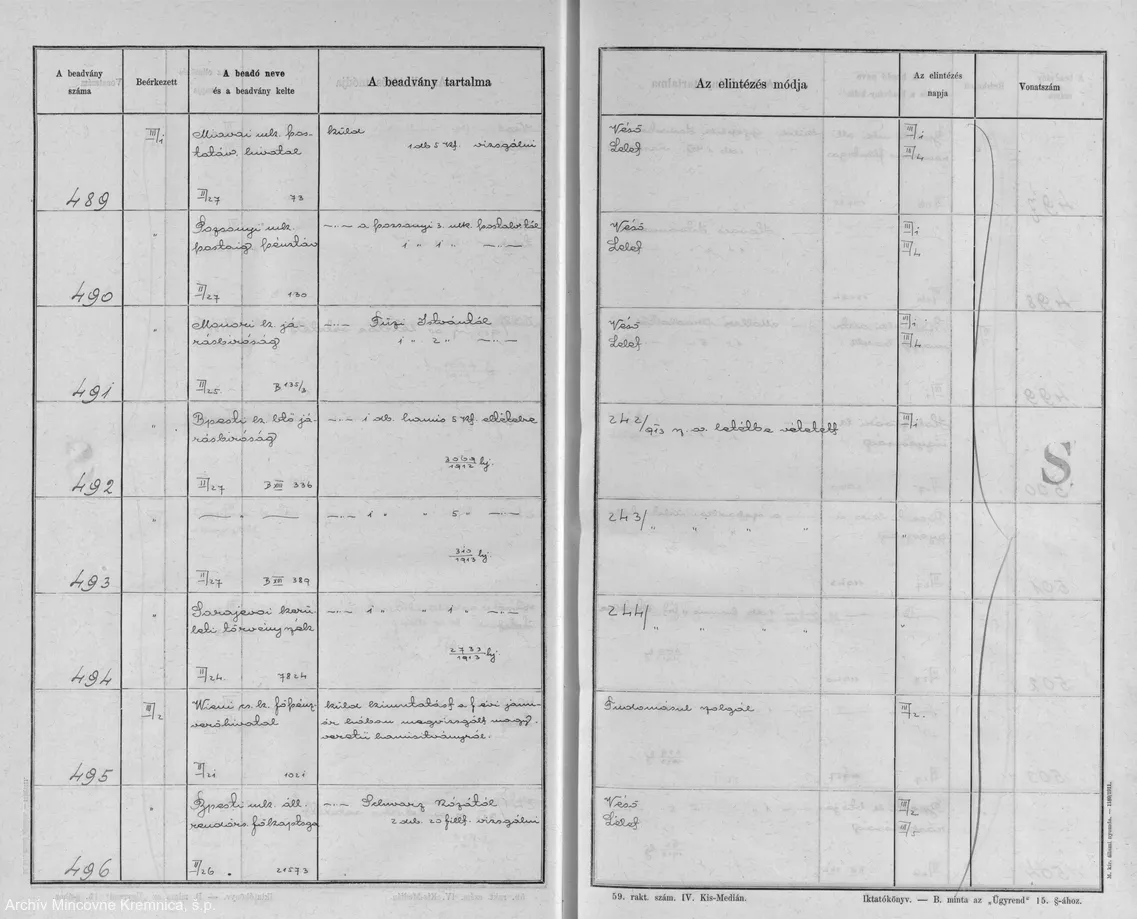 A beadvány száma
Beérkezett
A beadó neve és a beadvány kelte
A beadvány tartalma
Az elintézés módja
Az elintézés napja
Vonatszám
489
III/1
Miavai mk. pos-
távir. hivatal
II/27 73
küld
1 db 5 Kf. vizsgálni
Véső
Lelet
III/1
III/4
490
"
Pozsonyi mk.
postaig. pénztár
II/27 130
—..— a pozsonyi 3. mk. postahivtól
1 " 1 " —..—
Véső
Lelet
III/1
III/4
491
"
járásbíróság
II/25. B 135/3
—..— Füzi Istvántól
1 " 2 " —..—
Véső
Lelet
III/1
III/4
492
"
Bpesti k. btő já-
rásbíróság
II/27 B XIII 336
—..— 1 db. hamis 5 Kf. elitélve
3069/1912 bj.
242/913 n. a. letétbe vétetett
III/1
S
493
"
— " —
II/27 B XIII 389
—..— 1 " " 5 " —..—
310/1913 bj.
243/ " " " "
"
494
"
Sarajevoi kerü-
leti törvényszék
II/24. 7824
—..— 1 " " 1 " —..—
2733/1913 bj.
244/ " " " "
"
495
III/2
Wieni cs. k. főpénz-
verőhivatal
II/21 1021
küld kimutatást a f. évi janu-
ár hóban megvizsgált magy.
veretü hamisitványról.
Tudomásul szolgál
III/2.
496
"
Bpesti mk. áll.
rendőrs. főkapitsága
II/26 . 21573
—..— Schwarz Rózától
2 db. 20 fillt. vizsgálni
Véső
Lelet
III/2
III/5
59. rakt. szám. IV. Kis-Medián.
Iktatókönyv. — B. minta az „Ügyrend" 15. §-ához.
Archív Mincovne Kremnica, š.p.